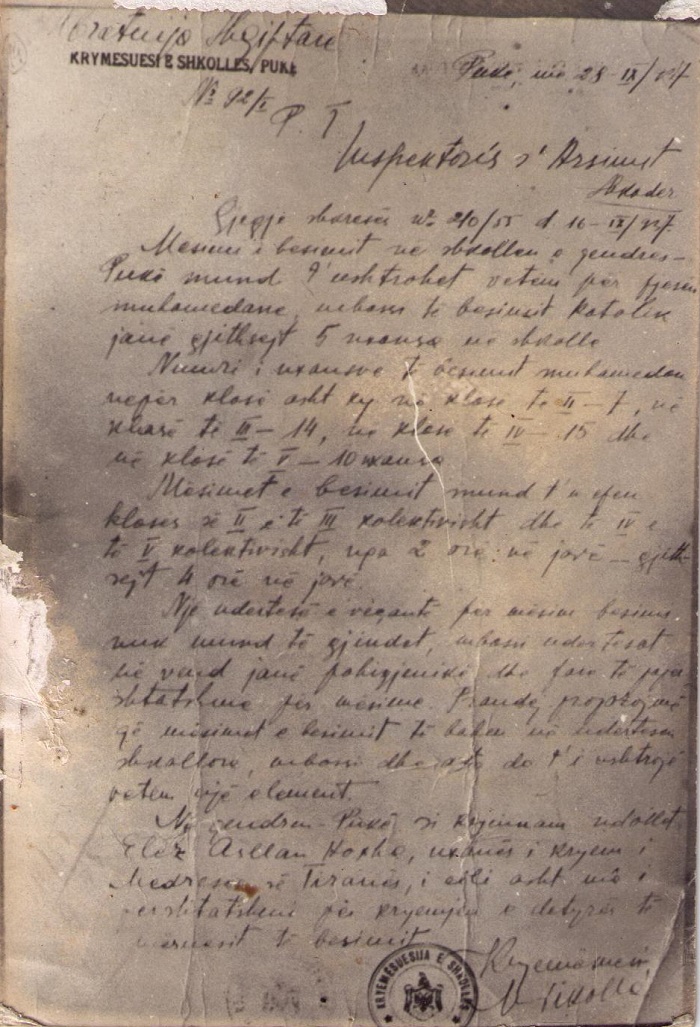 Mbretnija Shqiptare
KRYMESUESI E SHKOLLES, PUKË
Nº 92/I
Pukë, më 28-IX/937
P. T
Inspektoris s' Arsimit
Shkoder
Gjegje shkreses nº 210/55 d. 16-IX/937
Mesimi i besimit në shkollen e qendres-
Pukë mund t'ushtrohet vetem për pjesen
muhamedane, mbassi të besimit katolik
janë gjithsejt 5 nxansa në shkollë
Numri i nxansve të besimit muhamedan
nepër klasë asht ky në klasë të II-7, në
klasë të III-14, në klasë të IV-15 dhe
në klasë të V-10 nxansa
Mësimet e besimit mund t'u epen
klases së II e të III kolektivisht dhe të IV e
të V kolektivisht, nga 2 orë në javë - gjith-
sejt 4 orë në javë.
Një ndertesë e veçantë për mësim besimi
nuk mund të gjindet, mbassi ndertesat
në vend janë pahigjenike dhe fare të papër-
shtatshme për mësime. Prandej propozojmë
që mësimet e besimit të bahen në ndertesen
shkollore, mbassi dhe ato do t'i ushtrojë
vetem një element.
Në qendren-Pukë si kryeimam ndollet
Elez Arllan Hoxha, nxanës i kryem i
Medreses së Tiranës, i cili asht më i
pershtatshmi për kryemjen e detyrës të
mësuesit të besimit
Kryemësuesi
N.
KRYEMESUESIJA E SHKOLLËS